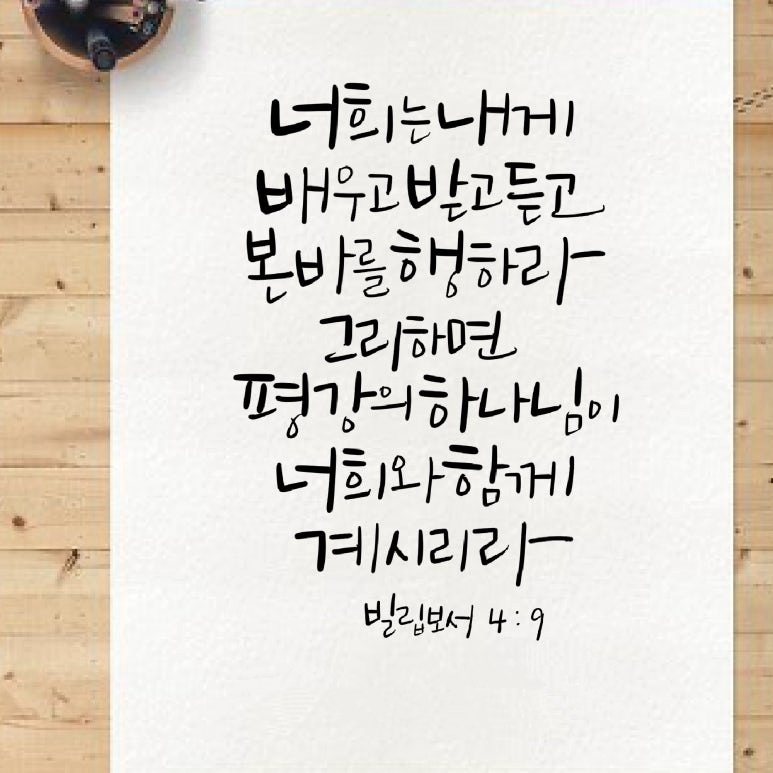 너희는 내게
배우고 받고 듣고
본 바를 행하라
그리하면
평강의 하나님이
너희와 함께
계시리라
빌립보서 4:9